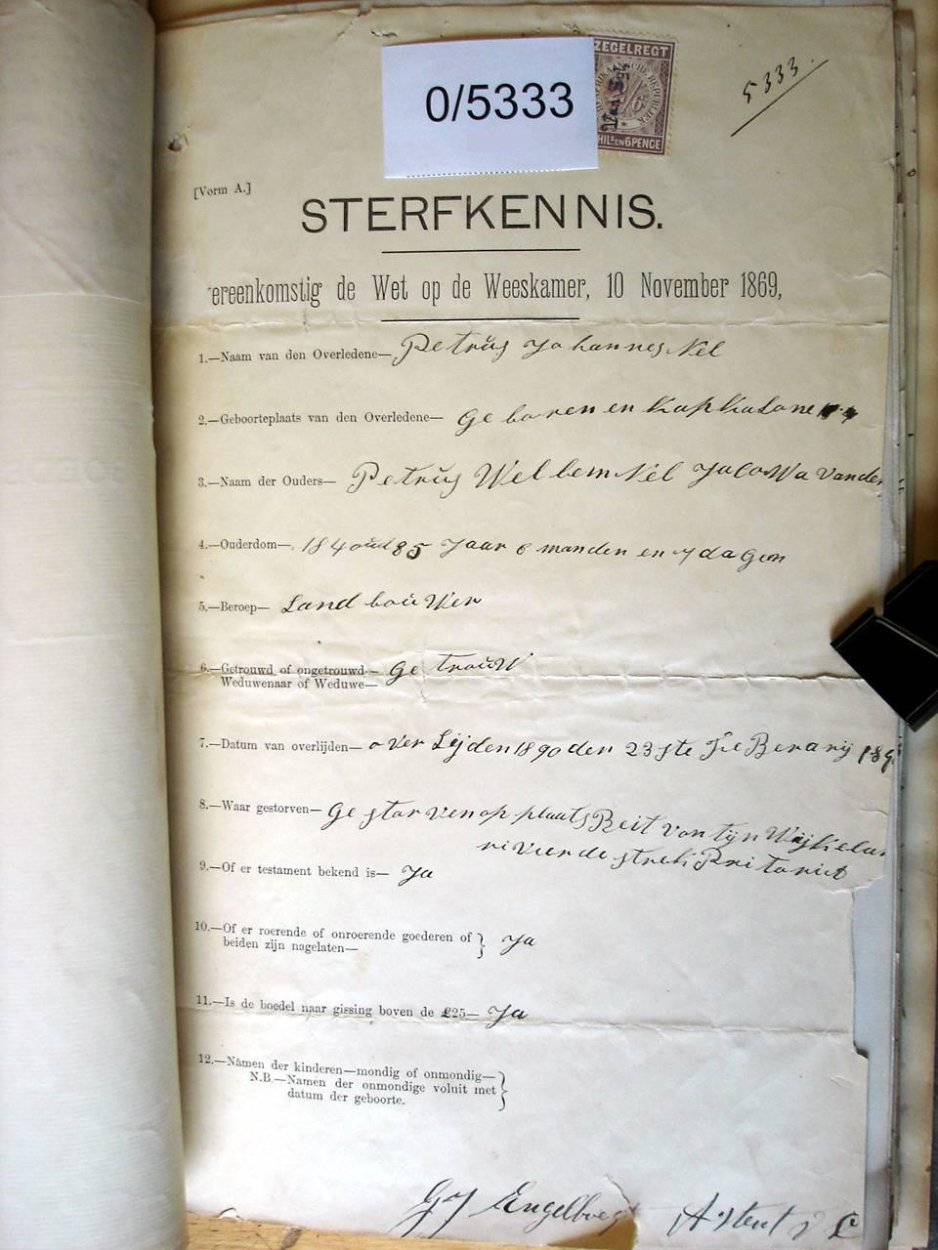 0/5333
ZEGELREGT
EN 6 PENCE
5333.
[Vorm A.]
STERFKENNIS.
ereenkomstig de Wet op de Weeskamer, 10 November 1869,
1.—Naam van den Overledene— Petrus Johannes Nel
2.—Geboorteplaats van den Overledene— Ge boren en
3.—Naam der Ouders— Petrus Wellem Nel Jacowa Vander
4.—Ouderdom— 84 oud 85 Jaar 6 manden en 7 dagen
5.—Beroep— Land bouwer
6.—Getrouwd of ongetrouwd— Ge trouw
Weduwenaar of Weduwe—
7.—Datum van overlijden— over Lijden 1890 den 23 ste Fe Berarij 189
8.—Waar gestorven— Ge starven op plaats Reit van tijn Wijk
rivier de strek Pri toria
9.—Of er testament bekend is— Ja
10.—Of er roerende of onroerende goederen of } Ja
beiden zijn nagelaten—
11.—Is de boedel naar gissing boven de £25— Ja
12.—Namen der kinderen—mondig of onmondig— }
N.B.—Namen der onmondige voluit met
datum der geboorte.
G J Engelbreg